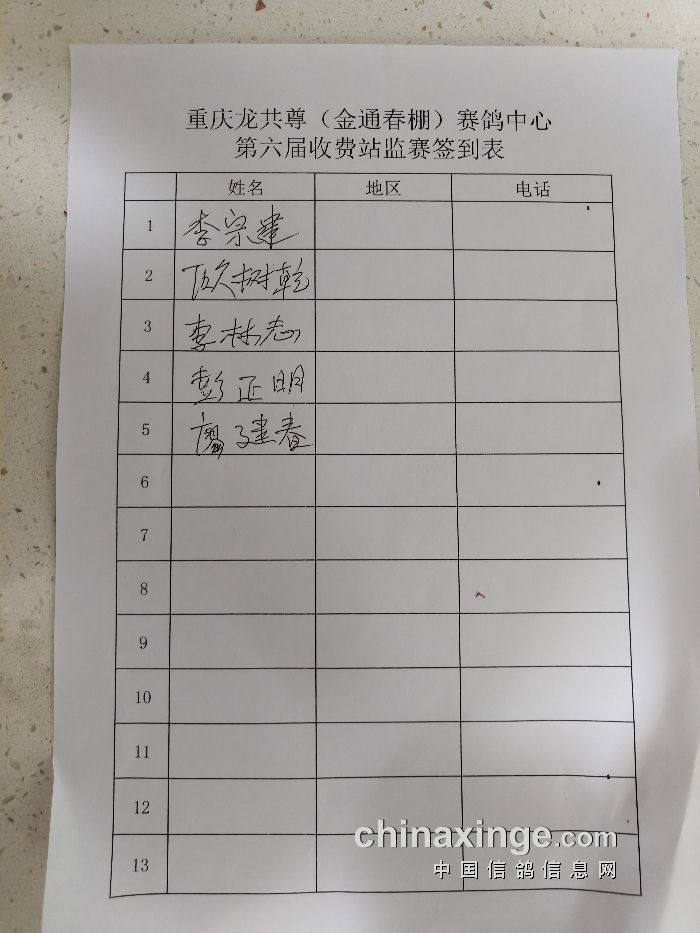 重庆龙共尊（金通春棚）赛鸽中心
第六届收费站监赛签到表
姓名 地区 电话
1 李宗建
2 树乾
3 李林志
4 彭正明
5 廖建春
6
7
8
9
10
11
12
13
chinaxinge.com
中国信鸽信息网